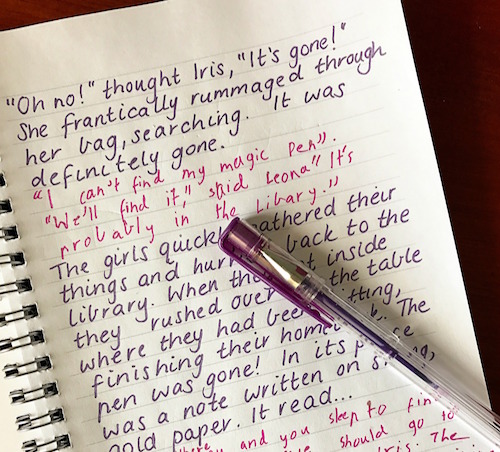 "Oh no!" thought Iris, "It's gone!"
She frantically rummaged through
her bag, searching. It was
definitely gone.
"I can't find my magic Pen".
"We'll find it," said Leona" It's
probably in the Library."
The girls gathered their
things and back to the
library. When inside
they rushed the table
where they had
finishing their The
pen was gone! In its
was a note written on
gold paper. It read...
and you sleep to
should go to
Iris. The